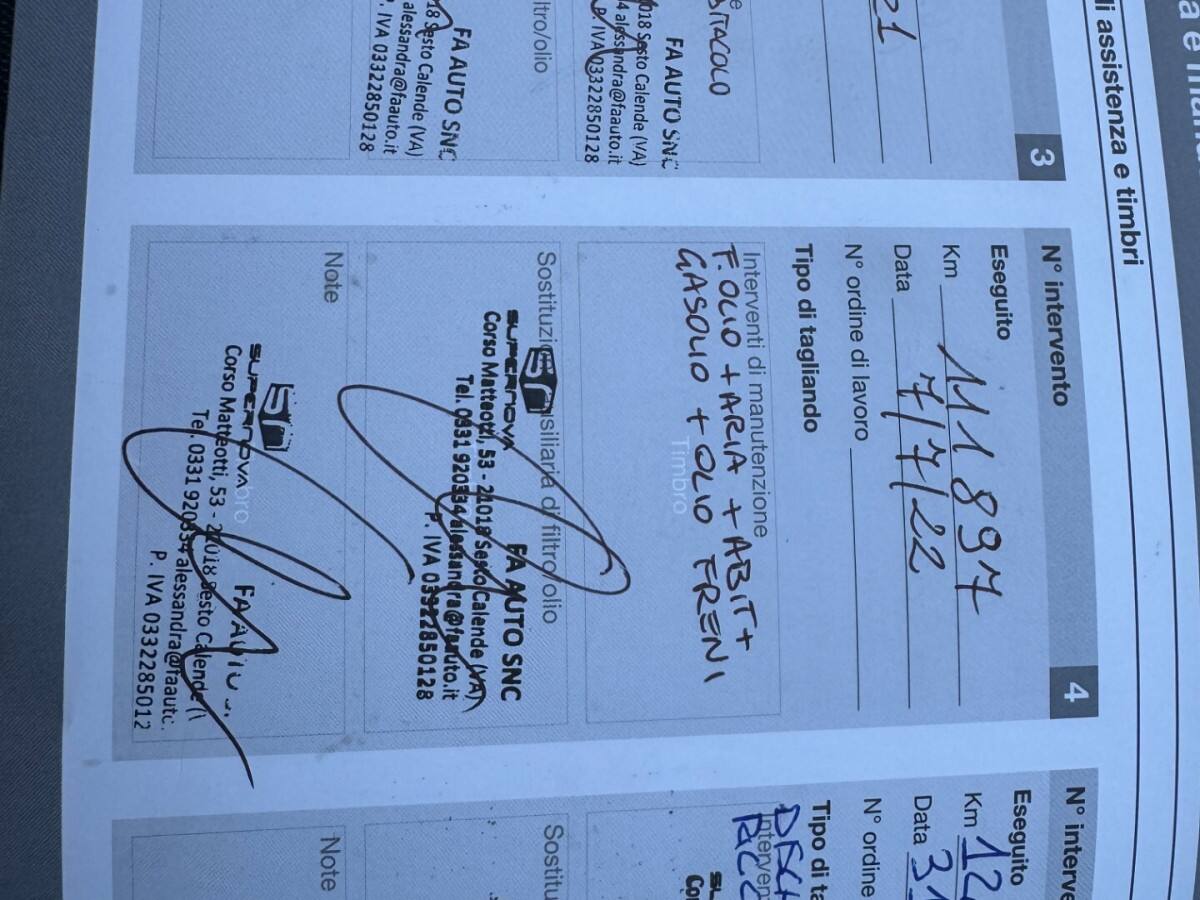 di assistenza e timbri
3
21
BITACOLO
FA AUTO SNC
018 Sesto Calende (VA)
4 alessandra@faauto.it
P. IVA 03322850128
ltro/olio
FA AUTO SNC
018 Sesto Calende (VA)
alessandra@faauto.it
P. IVA 03322850128
N° intervento 4
Eseguito
Km 111897
Data 7/7/22
N° ordine di lavoro
Tipo di tagliando
Interventi di manutenzione
F. OLIO + ARIA + ABIT +
GASOLIO + OLIO FRENI
Timbro
Sostituzione di filtro/olio
SUPERNOVA FA AUTO SNC
Corso Matteotti, 53 - 21018 Sesto Calende (VA)
Tel. 0331 920334 alessandra@faauto.it
P. IVA 03322850128
Note
SUPERNOVA
Corso Matteotti, 53 - 21018 Sesto Calende (
Tel. 0331 920334 alessandra@faauto.
P. IVA 0332285012
N° interve
Eseguito
Km 12
Data 31
N° ordine
Tipo di ta
Sostitu
Note